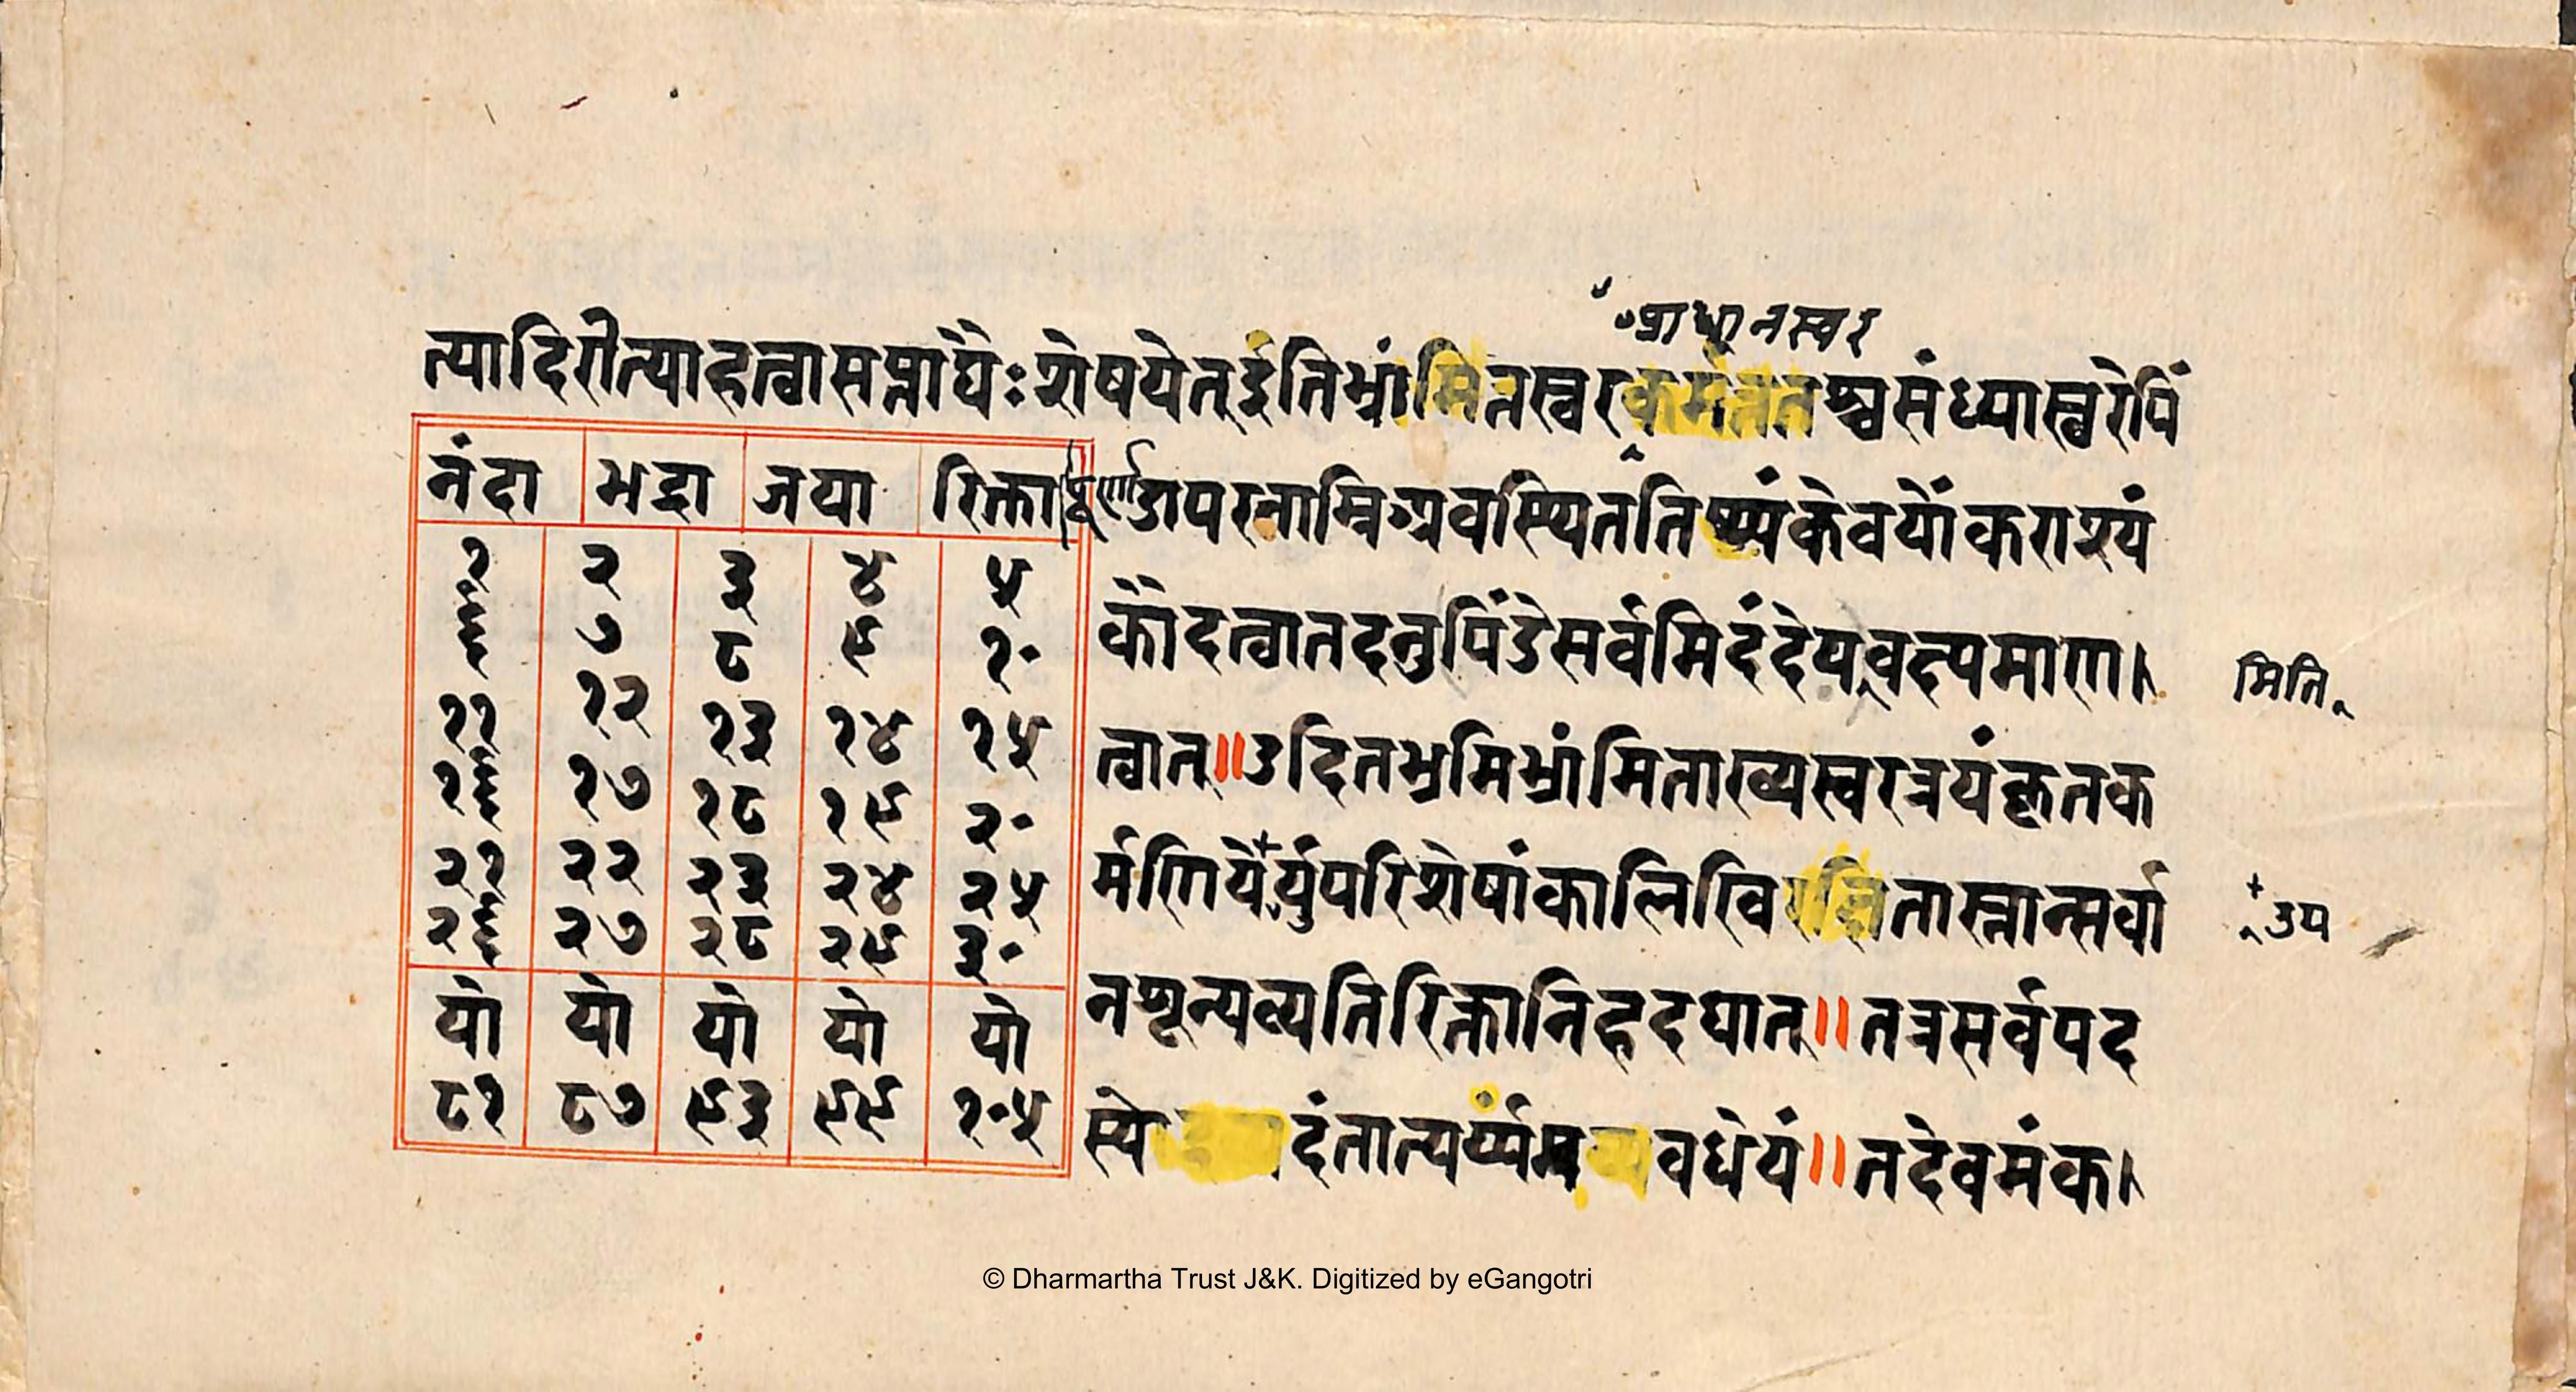 प्राधानस्वर
त्यादिरीत्याहत्वासप्तांघैःशेषयेत् इतिभ्रांमितस्वरकर्मततश्चसंध्यास्वरेपिं
नंदा भद्रा जया रिक्ता पूर्णा
१ २ ३ ४ ५
६ ७ ८ ९ १०
११ १२ १३ १४ १५
१६ १७ १८ १९ २०
२१ २२ २३ २४ २५
२६ २७ २८ २९ ३०
यो यो यो यो यो
८१ ८७ ९३ ९९ १०५
डापरनाम्निग्रवस्थितति केवर्योकराश्यं
कौदत्वातदनुपिंडेसर्वमिदंदेयवक्ष्यमाण।
मिति
त्वात्॥उदितभ्रमिभ्रांमिताख्यस्वरत्रयंकृतक
र्मणियैर्युपरिशेषांकालिखि तास्तान्सर्वा
उप
नशून्यव्यतिरिक्तानिहदघात्॥तत्रसर्वपद
स्ये दंतात्पर्य्यम वधेयं॥तदेवमंक।
© Dharmartha Trust J&K. Digitized by eGangotri